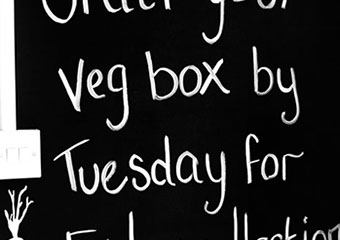 Order your
veg box by
Tuesday for
Friday collection